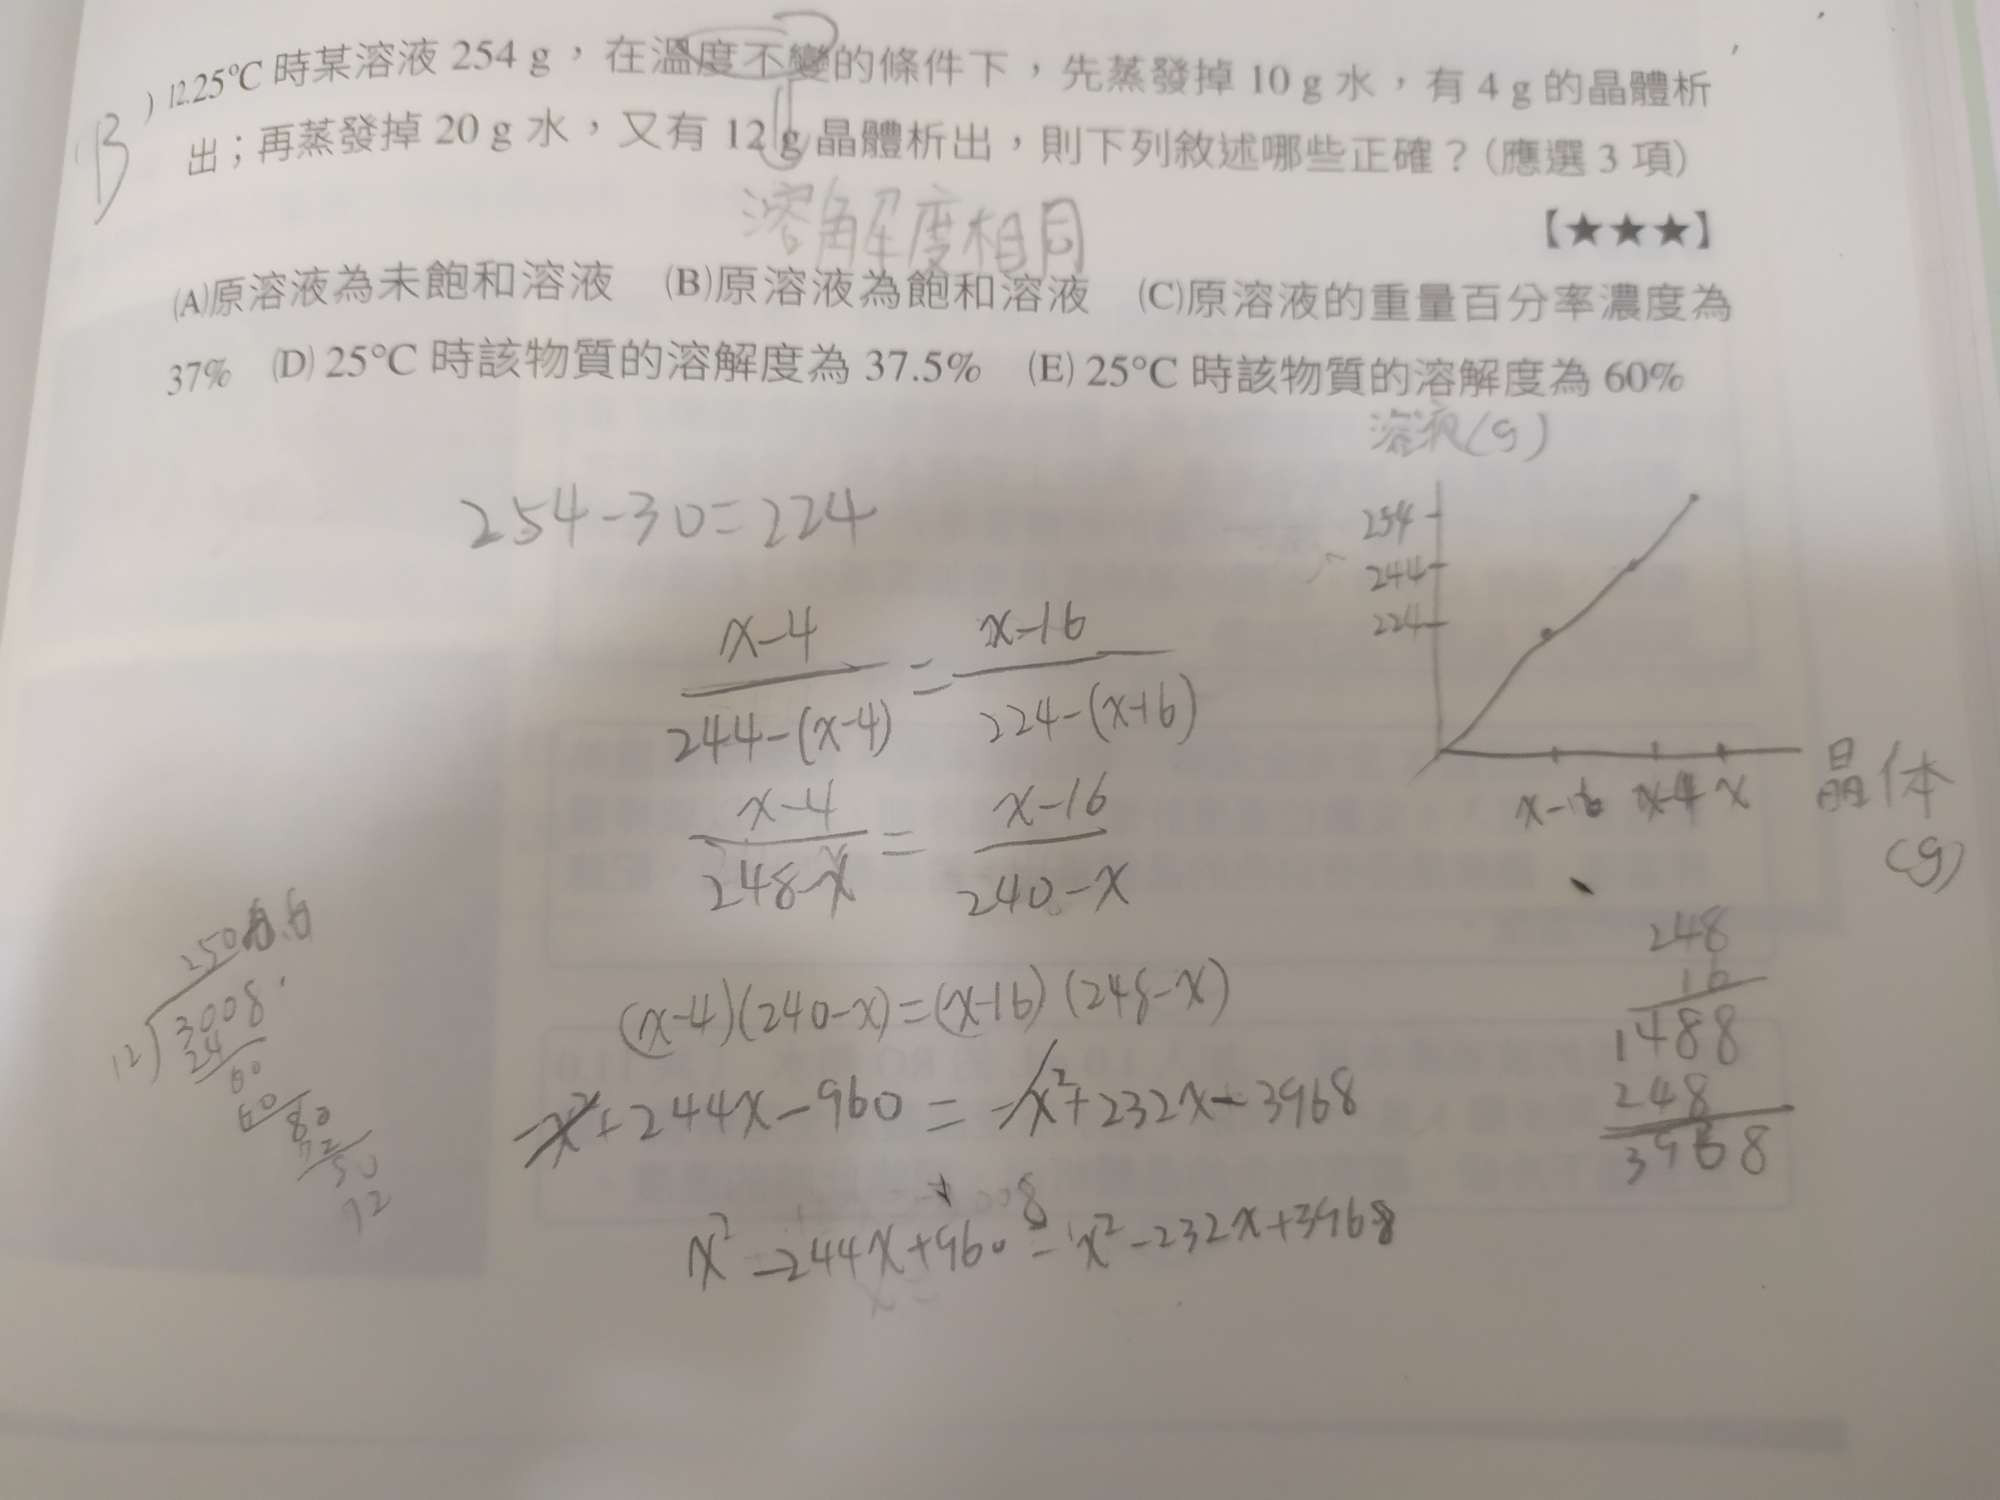 B
) 12.25°C 時某溶液 254 g，在溫度不變的條件下，先蒸發掉 10 g 水，有 4 g 的晶體析
出；再蒸發掉 20 g 水，又有 12 g 晶體析出，則下列敘述哪些正確？(應選 3 項)
溶解度相同
【★★★】
(A)原溶液為未飽和溶液 (B)原溶液為飽和溶液 (C)原溶液的重量百分率濃度為
37% (D) 25°C 時該物質的溶解度為 37.5% (E) 25°C 時該物質的溶解度為 60%
溶液(g)
254
244
224
x-16 x-4 x
晶体
(g)
254-30=224
x-4 / 244-(x-4) = x-16 / 224-(x-16)
x-4 / 248-x = x-16 / 240-x
(x-4)(240-x)=(x-16)(248-x)
-x²+244x-960 = -x²+232x-3968
x²-244x+960 = x²-232x+3968
248
16
1488
248
3968
12)3008
24
60
60
80
72